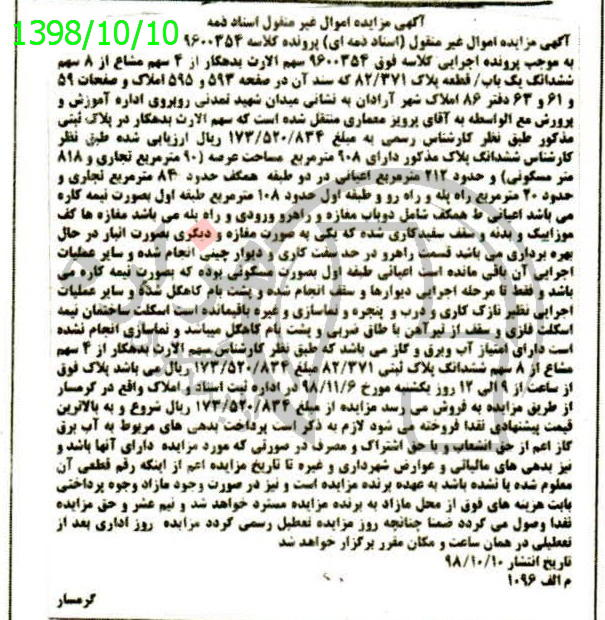 آگهی مزایده اموال غیر منقول اسناد ذمه
1398/10/10
آگهی مزایده اموال غیر منقول (اسناد ذمه ای) پرونده کلاسه ۹۶۰۰۳۵۴
به موجب پرونده اجرایی کلاسه فوق ۹۶۰۰۳۵۴ سهم الارث بدهکار از ۴ سهم مشاع از ۸ سهم
ششدانگ یک باب/ قطعه پلاک ۸۲/۳۷۱ که سند آن در صفحه ۵۹۳ و ۵۹۵ املاک و صفحات ۵۹
و ۶۱ و ۶۳ دفتر ۸۶ املاک شهر آرادان به نشانی میدان شهید تمدنی روبروی اداره آموزش و
پرورش مع الواسطه به آقای پرویز معماری منتقل شده است که سهم الارث بدهکار در پلاک ثبتی
مذکور طبق نظر کارشناس رسمی به مبلغ ۱۷۳/۵۲۰/۸۳۴ ریال ارزیابی شده طبق نظر
کارشناس ششدانگ پلاک مذکور دارای ۹۰۸ مترمربع مساحت عرصه (۹۰ مترمربع تجاری و ۸۱۸
متر مسکونی) و حدود ۲۱۲ مترمربع اعیانی در دو طبقه همکف حدود ۸۴ مترمربع تجاری و
حدود ۲۰ مترمربع راه پله و راه رو و طبقه اول حدود ۱۰۸ مترمربع طبقه اول بصورت نیمه کاره
می باشد اعیانی ط همکف شامل دوباب مغازه و راهرو ورودی و راه پله می باشد مغازه ها کف
موزاییک و بدنه و سقف سفیدکاری شده که یکی به صورت مغازه و دیگری بصورت انبار در حال
بهره برداری می باشد قسمت راهرو در حد سفت کاری و دیوار چینی انجام شده و سایر عملیات
اجرایی آن باقی مانده است اعیانی طبقه اول بصورت مسکونی بوده که بصورت نیمه کاره می
باشد و فقط تا مرحله اجرایی دیوارها و سقف انجام شده و پشت بام کاهگل شده و سایر عملیات
اجرایی نظیر نازک کاری و درب و پنجره و نماسازی و غیره باقیمانده است اسکلت ساختمان نیمه
اسکلت فلزی و سقف از تیرآهن با طاق ضربی و پشت بام کاهگل میباشد و نماسازی انجام نشده
است دارای امتیاز آب وبرق و گاز می باشد که طبق نظر کارشناس سهم الارث بدهکار از ۴ سهم
مشاع از ۸ سهم ششدانگ پلاک ثبتی ۸۲/۳۷۱ مبلغ ۱۷۳/۵۲۰/۸۳۴ ریال می باشد پلاک فوق
از ساعت از ۹ الی ۱۲ روز یکشنبه مورخ ۹۸/۱۱/۶ در اداره ثبت اسناد و املاک واقع در گرمسار
از طریق مزایده به فروش می رسد مزایده از مبلغ ۱۷۳/۵۲۰/۸۳۴ ریال شروع و به بالاترین
قیمت پیشنهادی نقدا فروخته می شود لازم به ذکر است پرداخت بدهی های مربوط به آب برق
گاز اعم از حق انشعاب و یا حق اشتراک و مصرف در صورتی که مورد مزایده دارای آنها باشد و
نیز بدهی های مالیاتی و عوارض شهرداری و غیره تا تاریخ مزایده اعم از اینکه رقم قطعی آن
معلوم شده یا نشده باشد به عهده برنده مزایده است و نیز در صورت وجود مازاد وجوه پرداختی
بابت هزینه های فوق از محل مازاد به برنده مزایده مسترد خواهد شد و نیم عشر و حق مزایده
نقدا وصول می گردد ضمنا چنانچه روز مزایده تعطیل رسمی گردد مزایده روز اداری بعد از
تعطیلی در همان ساعت و مکان مقرر برگزار خواهد شد
تاریخ انتشار ۹۸/۱۰/۱۰
م الف ۱۰۹۶
گرمسار